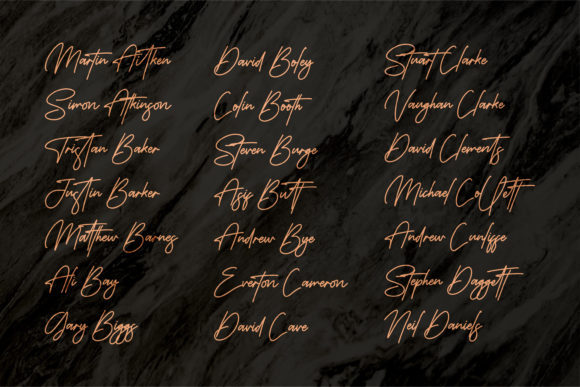 Martin Aitken
Simon Atkinson
Tristan Baker
Justin Barker
Matthew Barnes
Ali Bay
Gary Biggs
David Boley
Colin Booth
Steven Burge
Asis Butt
Andrew Bye
Everton Cameron
David Cave
Stuart Clarke
Vaughan Clarke
David Clements
Michael Collett
Andrew Cunliffe
Stephen Daggett
Neil Daniels